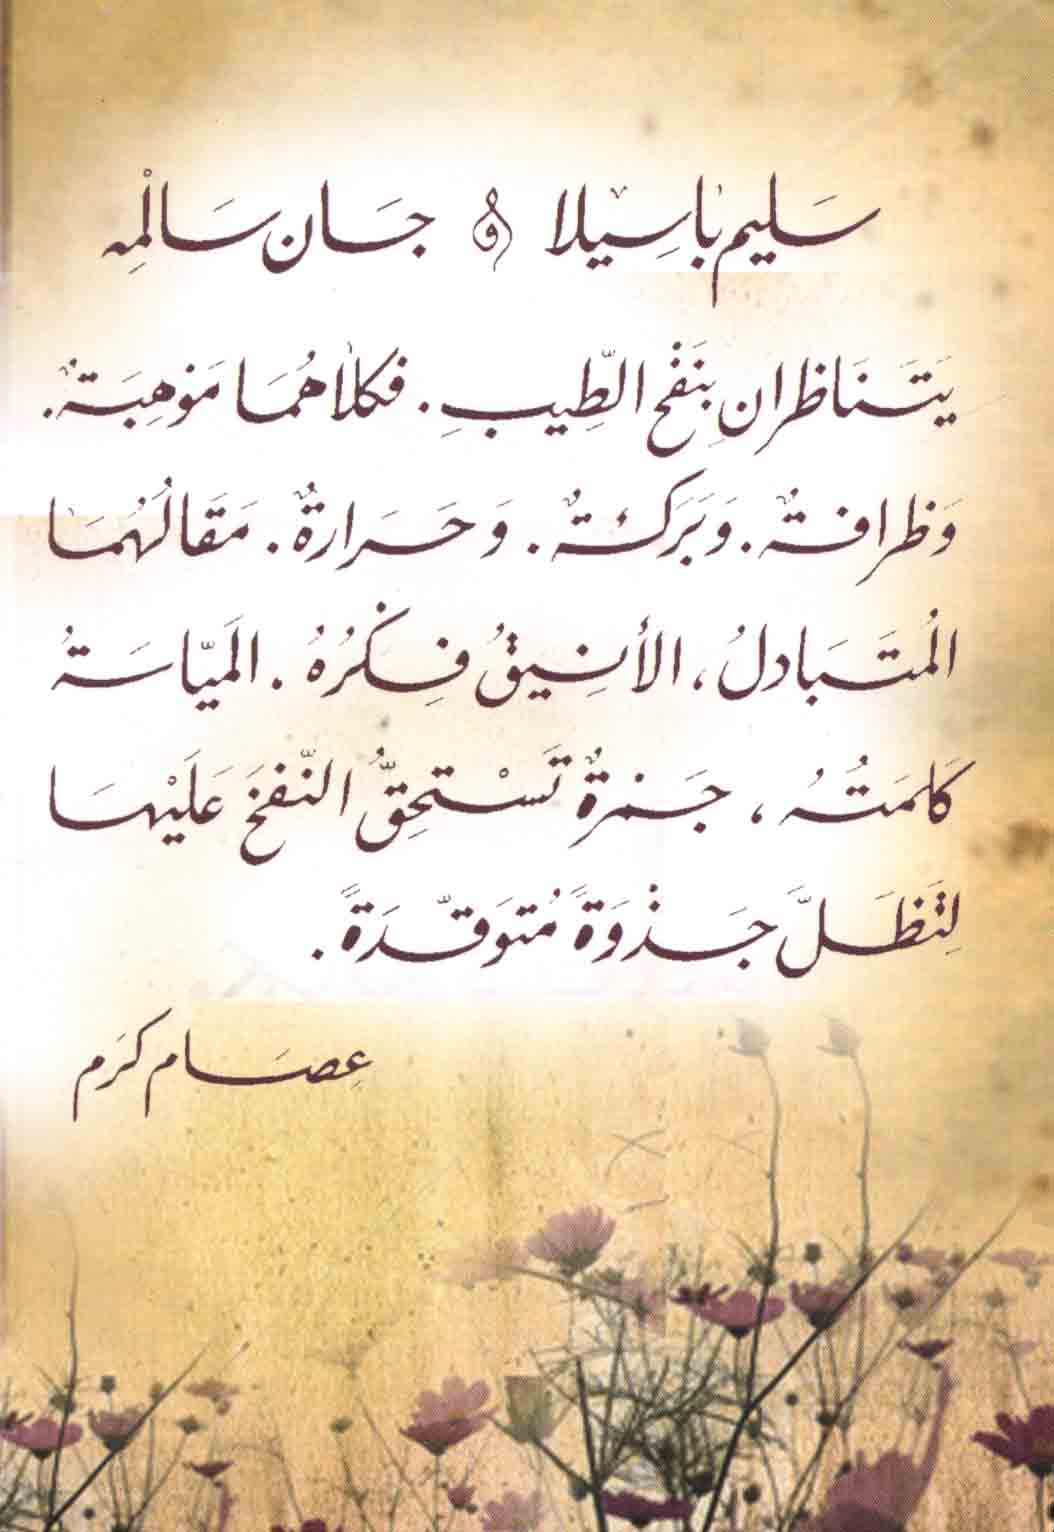 سَليم باسِيلا و جَان سَالمِه
يَتَنَاظران بِنَفْحِ الطِّيبِ. فكلاهُمَا مَوْهِبَةٌ.
وَظرافةٌ. وَبَرَكةٌ. وَحَرَارةٌ. مَقَالُهُمَا
المُتَبَادلُ، الأنِيقُ فِكرُهُ. المَيّاسَةُ
كَلمَتُهُ، جَمْرةٌ تَسْتحِقُّ النّفخَ عَلَيْهَا
لِتَظَلَّ جَذْوَةً مُتوَقّدَةً.
عِصَام كرَم